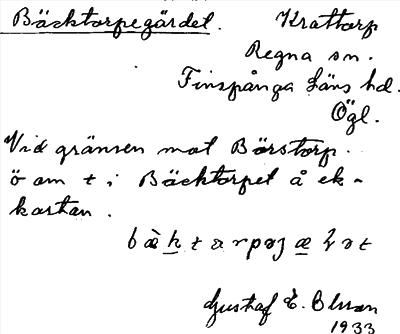 Bäcktorpegärdet. Krattorp
Regna sn.
Finspånga Läns hd.
Ögl.
Vid gränsen mot Börstorp.
ö om t i Bäcktorpet å ek-
kartan.
Gustaf E. Olsson
1933